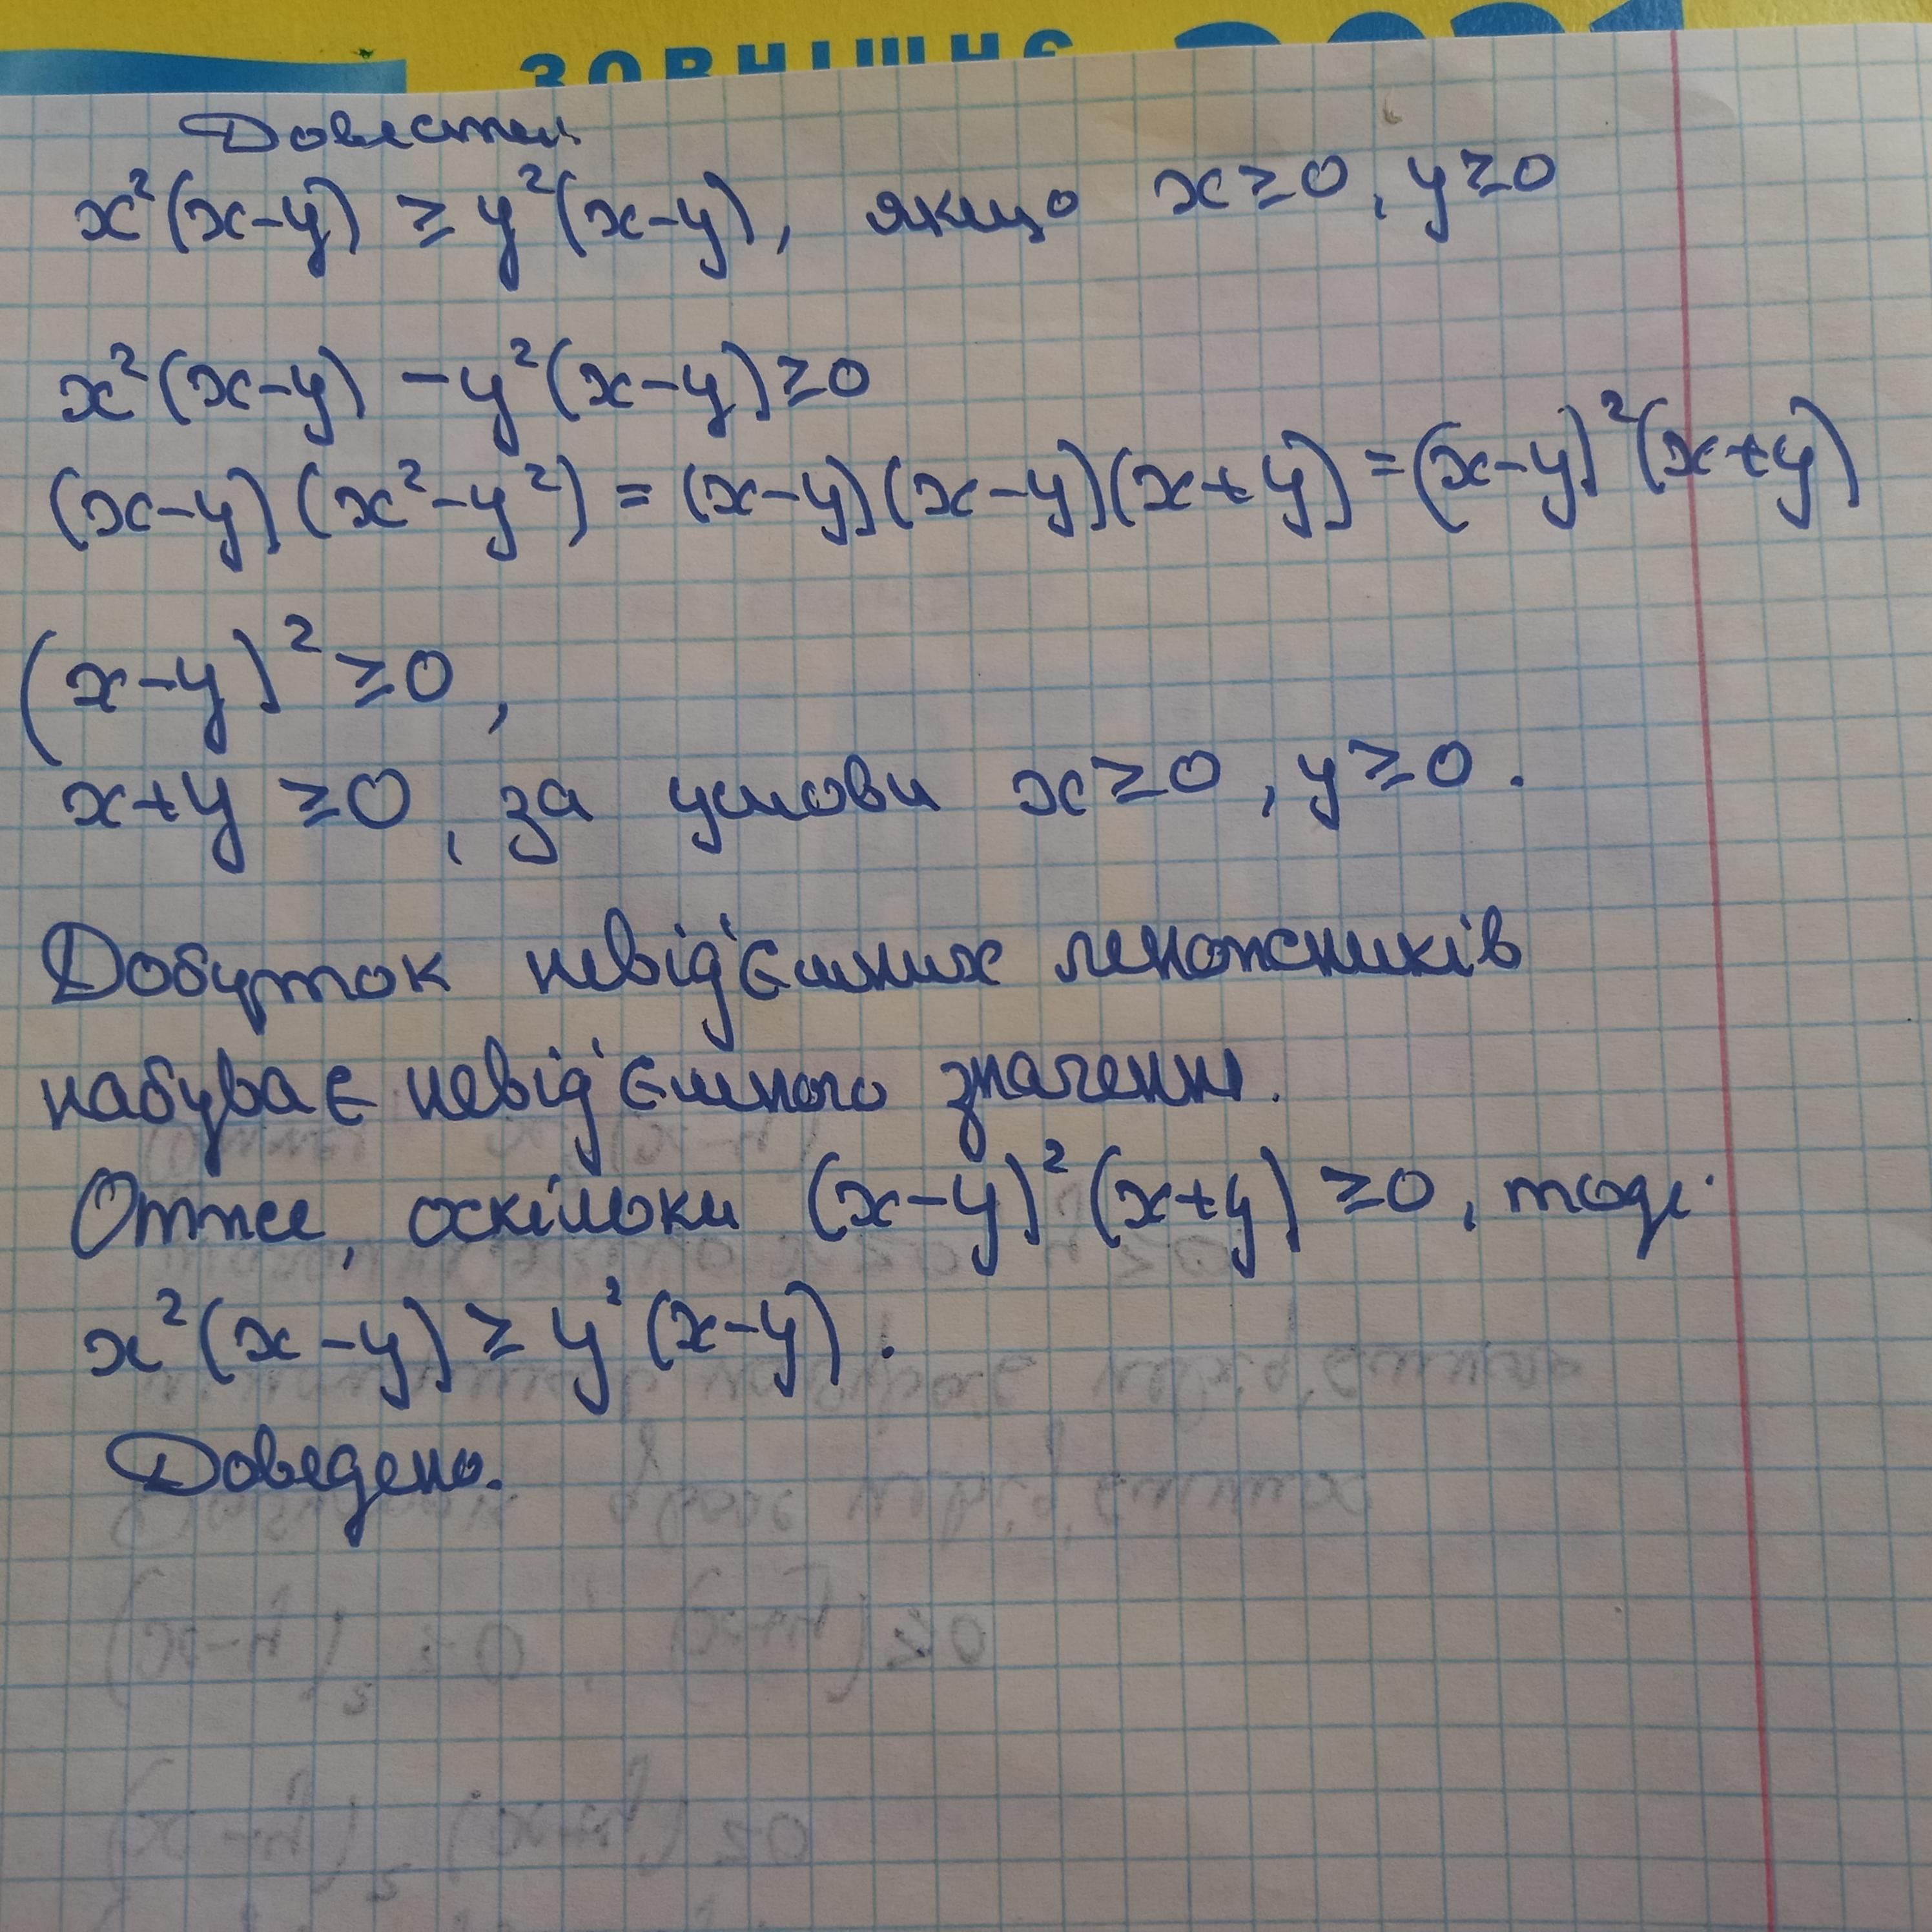 ЗОВНІШНЄ 2021
Довести:
x²(x-y) ≥ y²(x-y), якщо x≥0, y≥0
x²(x-y) -y²(x-y)≥0
(x-y)(x²-y²) = (x-y)(x-y)(x+y)=(x-y)²(x+y)
(x-y)²≥0,
x+y ≥0, за умови x≥0, y≥0.
Добуток невід'ємних множників
набуває невід'ємного значення.
Отже, оскільки (x-y)²(x+y)≥0, тоді
x²(x-y)≥y²(x-y).
Доведено.